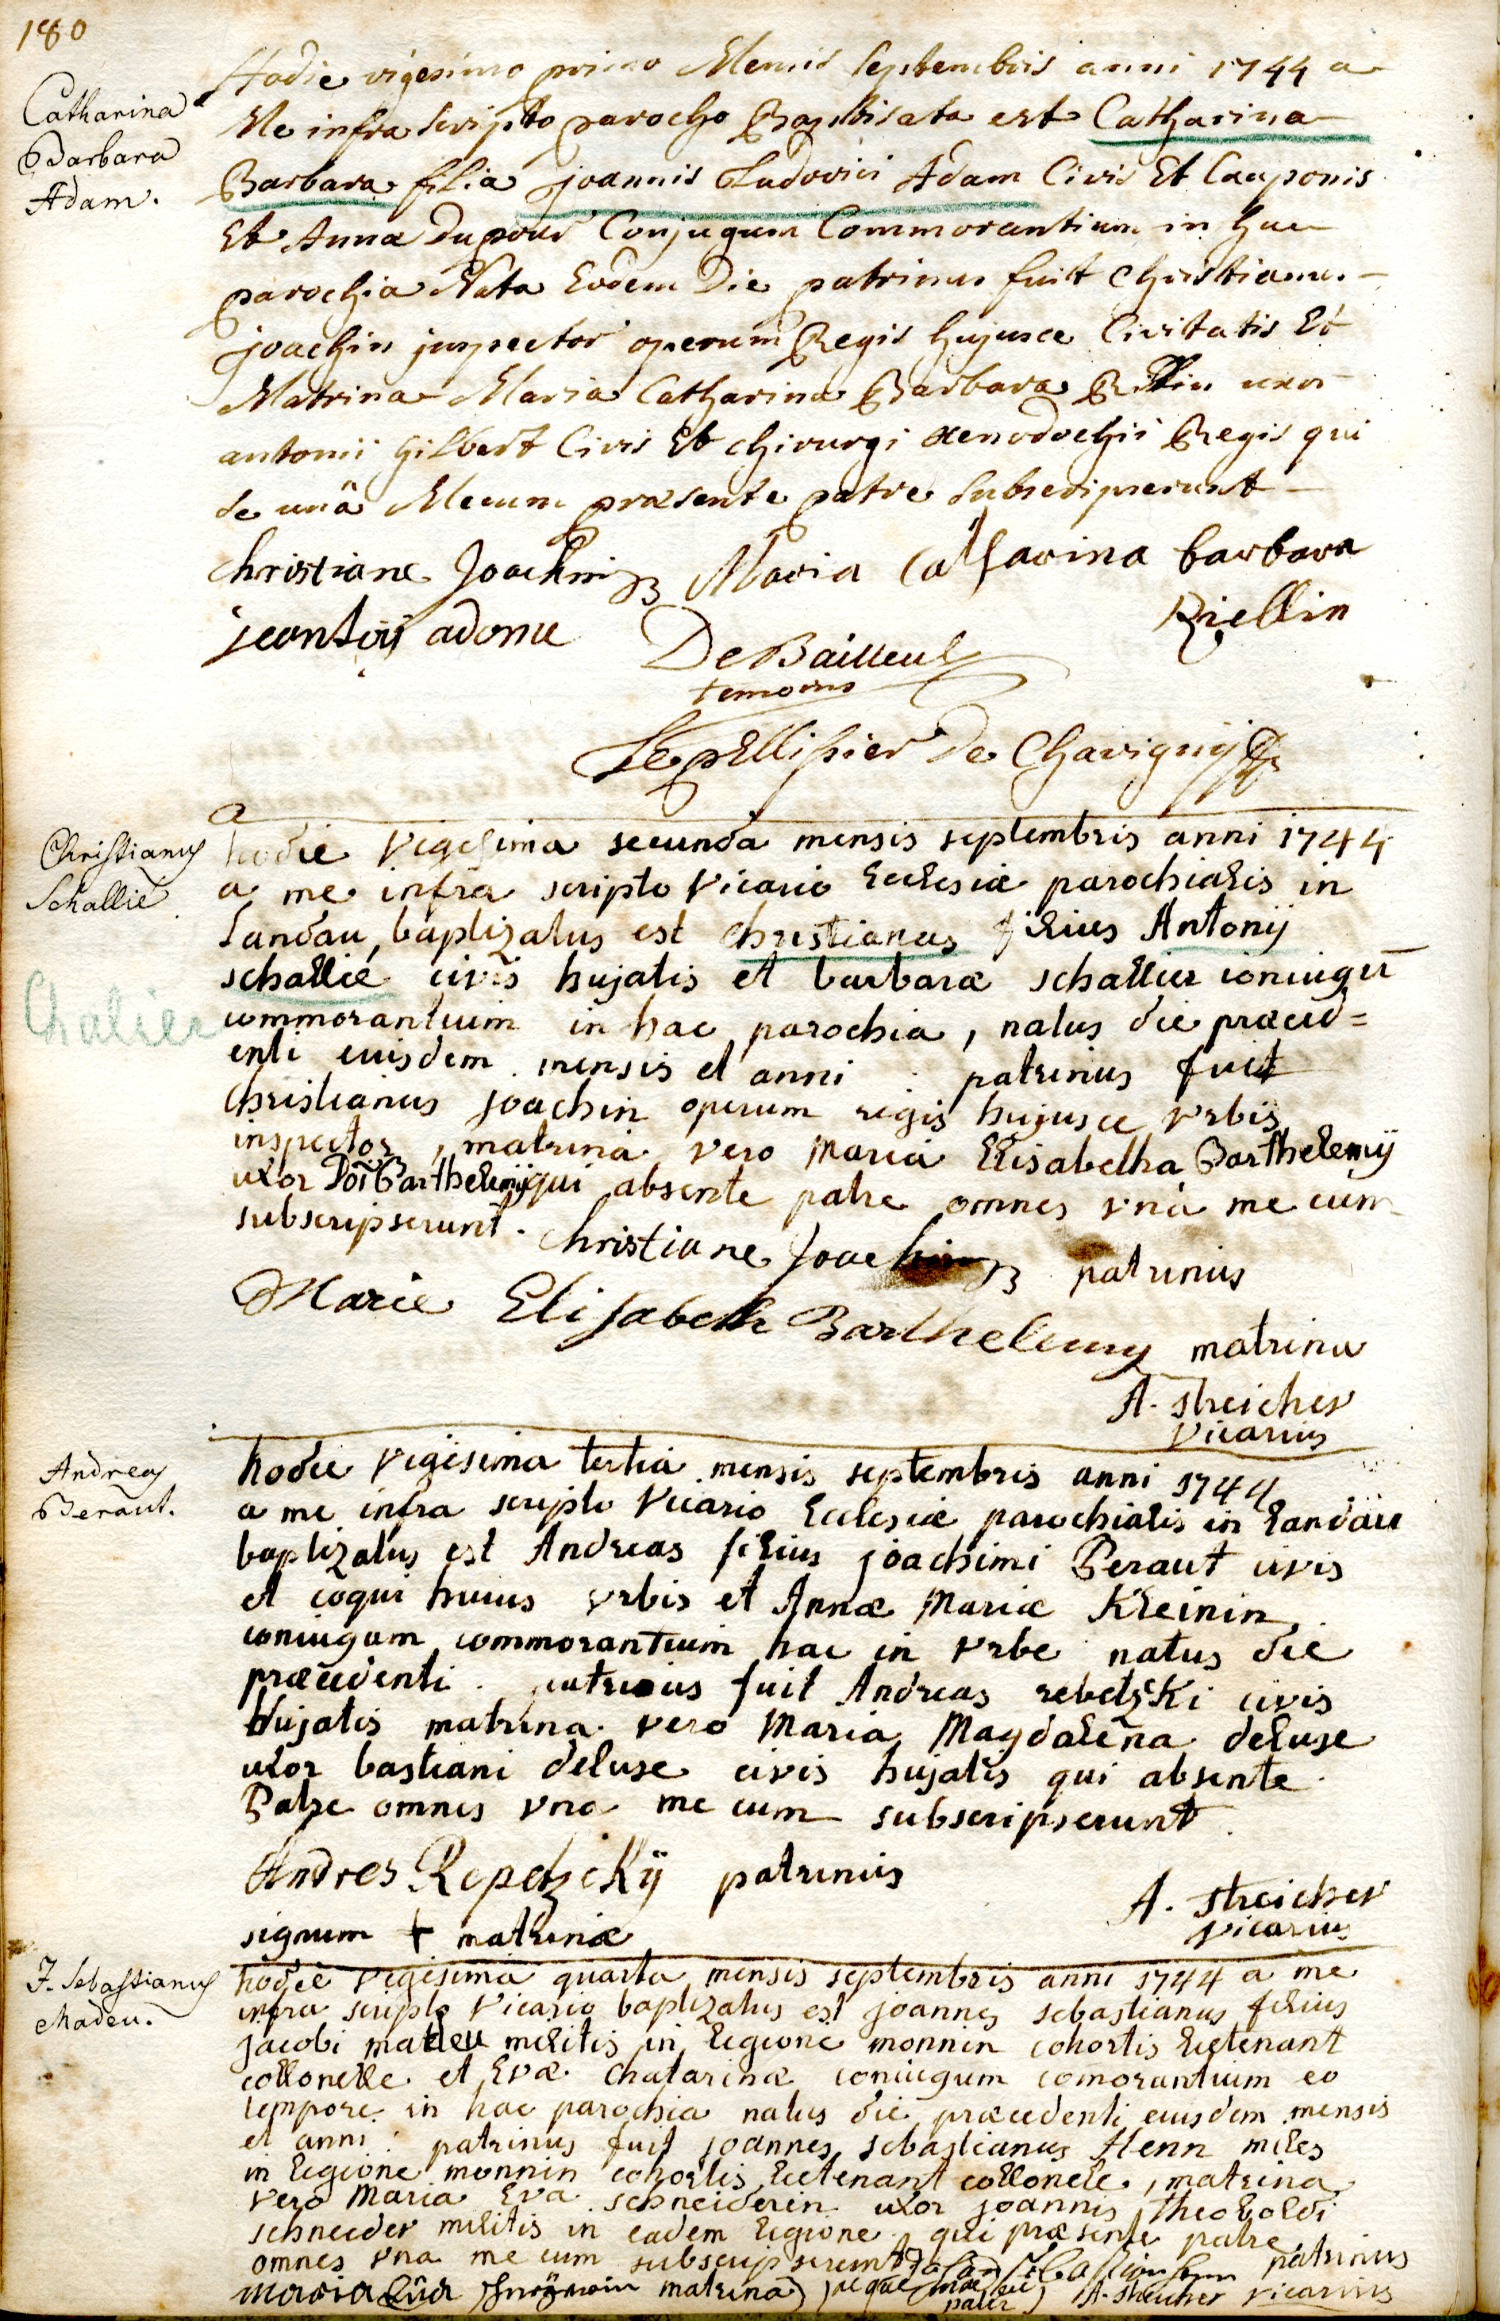 180
Catharina
Barbara
Adam.
Hodie vigesimo primo Mensis Septembris anni 1744 a
Me infra scripto parocho Baptisata est Catharina
Barbara filia joannis Ludovici Adam Civis Et Cauponis
Et Anna Conjugum Commorantium in hac
parochia Nata Eodem Die patrinus fuit Christianus
joachin juspector operum Regis hujusce Civitatis Et
Matrina Maria Catharina Barbara uxor
antonii gilbert Civis Et chirurgi xenodochii Regis qui
se unâ Mecum præsente patre subscripserunt
christiane Joachin Maria Catharina barbara
Riellin
adome DeBailleul
temoins
Lepellissier de Chavigny
Christianus
Schallié
Chalier
hodie Vigesima secunda mensis septembris anni 1744
a me infra scripto Vicario Ecclesiæ parochialis in
Landau, baptizatus est christianus filius Antonij
schallié civis hujatis et barbaræ schallier coniugū
commorantium in hac parochia, natus die præced=
enti eiusdem mensis et anni : patrinus fuit
Christianus Joachin operum regis hujusce Vrbis
inspector, matrina vero Maria Elisabetha Barthelemÿ
uxor Barthelemij qui absente patre omnes vna me cum
subscripserunt. Christiane Joachin patrinus
Marie Elisabeth Barthelemy matrina
A. Streicher
Vicarius
Andreas
Beraut.
hodie Vigesima tertia mensis septembris anni 1744
a me infra scripto Vicario Ecclesiæ parochialis in Landau
baptizatus est Andreas filius joachimi Beraut civis
et coqui huius vrbis et Annæ Mariæ Kleinin
coniugum commorantium hac in Vrbe natus die
præcedenti. patrinus fuit Andreas rebetzki civis
hujatis matrina vero Maria Magdalena deluse
uxor bastiani deluse civis hujatis qui absente
Patre omnes vna me cum subscripserunt.
Andres Repetzckÿ patrinus
A. Streicher
Vicarius
signum + matrinæ
J. Sebastianus
Madeu.
hodie Vigesima quarta mensis septembris anni 1744 a me
infra scripto Vicario baptizatus est joannes sebastianus filius
jacobi madeu militis in Legione monnin cohortis lietenant
collonelle et Evæ Chatarinæ coniugum comorantium eo
tempore in hac parochia natus die præcedenti eiusdem mensis
et anni : patrinus fuit joannes sebastianus Henn miles
in Legione monnin cohortis lietenant collonele, matrina
vero Maria Eva schneiderin uxor joannis theoboldi
schneider militis in eadem legione qui præsente patre
omnes vna me cum subscripserunt patrinus
maria matrina pater A. Streicher vicarius